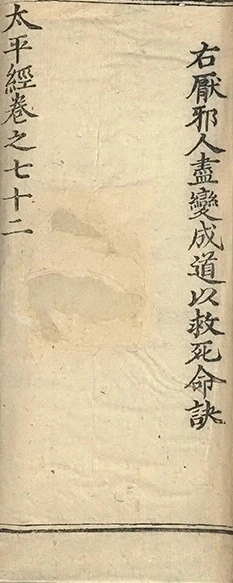 右厭邪人盡變成道以救死命訣
太平經卷之七十二